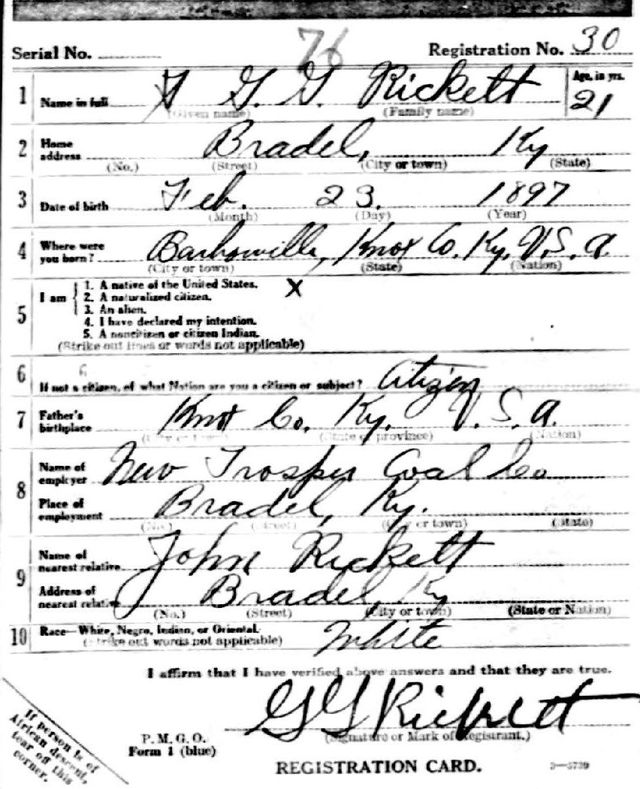 76
Serial No. Registration No. 30
1 Name in full G. G. Rickett Age, in yrs. 21
(Given name) (Family name)
2 Home address Bradel, Ky
(No.) (Street) (City or town) (State)
3 Date of birth Feb. 23. 1897
(Month) (Day) (Year)
4 Where were you born? Knox Co. Ky. U.S.A.
(City or town) (State) (Nation)
5 I am
1. A native of the United States. X
2. A naturalized citizen.
3. An alien.
4. I have declared my intention.
5. A noncitizen or citizen Indian.
(Strike out lines or words not applicable)
6 If not a citizen, of what Nation are you a citizen or subject? Citizen
7 Father's birthplace Knox Co. Ky. U.S.A.
(City or town) (State or province) (Nation)
8 Name of employer New Trosper Coal Co
Place of employment Bradel, Ky.
(No.) (Street) (City or town) (State)
9 Name of nearest relative John Rickett
Address of nearest relative Bradel Ky
(No.) (Street) (City or town) (State or Nation)
10 Race—White, Negro, Indian, or Oriental. White
(Strike out words not applicable)
I affirm that I have verified above answers and that they are true.
G G Rickett
P. M. G. O.
Form 1 (blue)
(Signature or Mark of Registrant.)
REGISTRATION CARD.
3—5739
If person is of
African descent,
tear off this
corner.